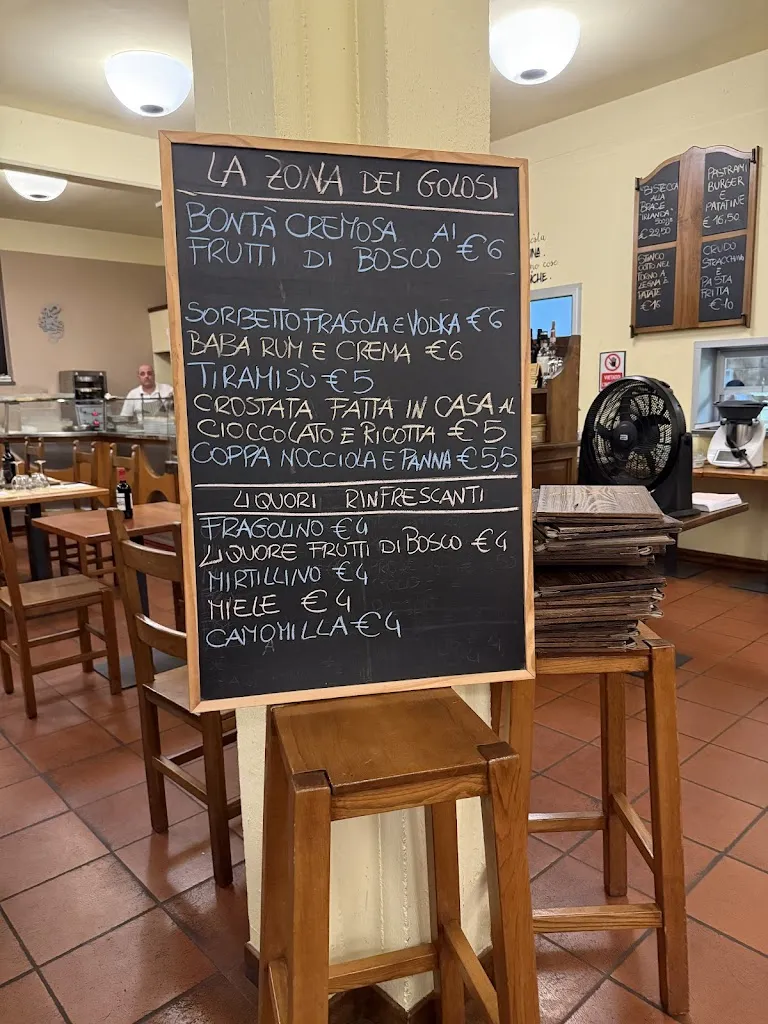 LA ZONA DEI GOLOSI
BONTÀ CREMOSA AI
FRUTTI DI BOSCO €6
SORBETTO FRAGOLA E VODKA €6
BABA RUM E CREMA €6
TIRAMISÙ €5
CROSTATA FATTA IN CASA AL
CIOCCOLATO E RICOTTA €5
COPPA NOCCIOLA E PANNA €5,5
LIQUORI RINFRESCANTI
FRAGOLINO €4
LIQUORE FRUTTI DI BOSCO €4
MIRTILLINO €4
MIELE €4
CAMOMILLA €4
BISTECCA
ALLA
BRACE
IRLANDA
500gr
€29,50
STINCO
COTTO NEL
FORNO A
LEGNA E
PATATE
€16
PASTRAMI
BURGER
E
PATATINE
€16,50
CRUDO
STRACCHINO
E
PASTA
FRITTA
€10